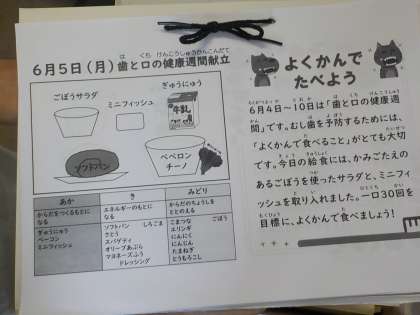 6月5日(月)歯と口の健康週間献立
ごぼうサラダ
ミニフィッシュ
ぎゅうにゅう
牛乳
ソフトパン
ペペロン
チーノ
あか
き
みどり
からだをつくるもとに
なる
エネルギーのもとに
なる
からだのちょうしを
ととのえる
ぎゅうにゅう
ベーコン
ミニフィッシュ
ソフトパン しろごま
さとう
スパゲティ
オリーブあぶら
マヨネーズふう
ドレッシング
こまつな ごぼう
エリンギ
にんにく
にんじん
たまねぎ
とうもろこし
よくかんで
たべよう
6月4日〜10日は「歯と口の健康週
間」です。むし歯を予防するためには、
「よくかんで食べること」がとても大切
です。今日の給食には、かみごたえの
あるごぼうを使ったサラダと、ミニフィ
ッシュを取り入れました。一口30回を
目標に、よくかんで食べましょう!